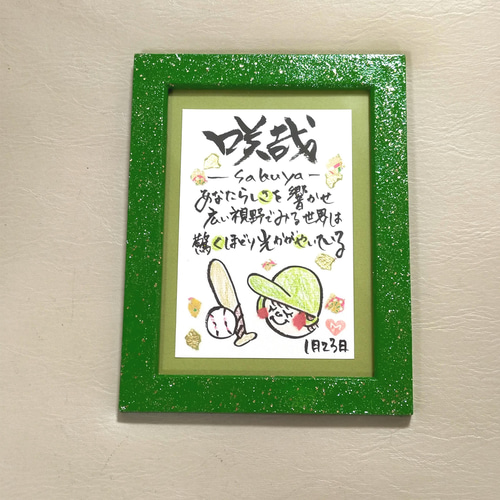 咲哉
-sakuya-
あなたらしさを響かせ
広い視野でみる世界は
驚くほどり光かがやいている
1月23日